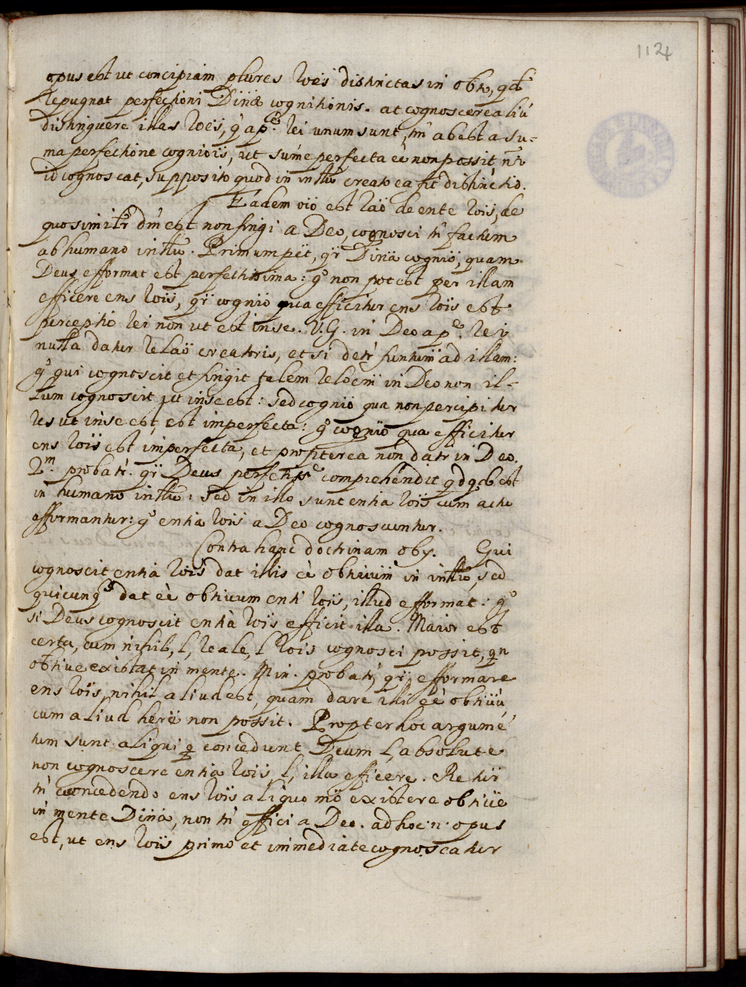 112
opus est ut concipiam plures rões distinctas in obto, qd
repugnat perfectioni Divinæ cognitionis. at cognoscere aliũ
distinguere illas rões, q̃ a p. rei unum sunt, tñ abest a su-
ma perfectione cogniõis, ut sume perfecta eẽ non possit nisi
id cognoscat, supposito quod in intũ creato ea fit distinctio.
Eadem oĩo est raõ de ente rõis, de
quo similr dm̃ est non fingi a Deo, cognosci tñ factum
ab humano intũ. Primum pt̃, qr̃ Divina cognio, quam
Deus efformat est perfectissima: gº non potest per illam
efficere ens rõis, qr̃ cognio qua efficitur ens rõis est
perceptio rei non ut est in se. V.G. in Deo a p. rei
nulla datur relaõ creatoris, etsi detr̃ funtum ad illam:
gº qui cognoscit et fingit talem relõem in Deo non il-
lum cognoscit ut in se est: sed cognio qua non percipitur
res ut in se est, est imperfecta: gº cognio qua efficitur
ens rõis est imperfecta, et propterea non datr in Deo.
2m. probatr. qr̃ Deus perfectissᵉ comprehendit qdqd est
in humano intũ: sed in illo sunt entia rõis cum actu
efformantur: gº entia rõis a Deo cognoscuntur.
Contra hanc doctrinam obj. Qui
cognoscit entia rõis dat illis eẽ obtivum in intũ, sed
quicunq̃ dat eẽ obtivum enti rõis, illud efformat: gº
si Deus cognoscit entia rõis efficit illa. Maior est
certa, cum nihil, l, reale, l, rõis cognosci possit, qn
obtive existat in mente. Min. probatr, qr̃ efformare
ens rõis, nihil aliud est, quam dare illi eẽ obtivũ,
cum aliud here non possit. Propter hoc argumẽ
tum sunt aliqui q̃ concedunt Deum l, absolute
non cognoscere entia rõis, l, illa efficere. Retur
tñ concedendo ens rõis aliquo mõ existere obtive
in mente Divina, non tñ effici a Deo. ad hoc .n. opus
est, ut ens rõis primo et immediate cognoscatur